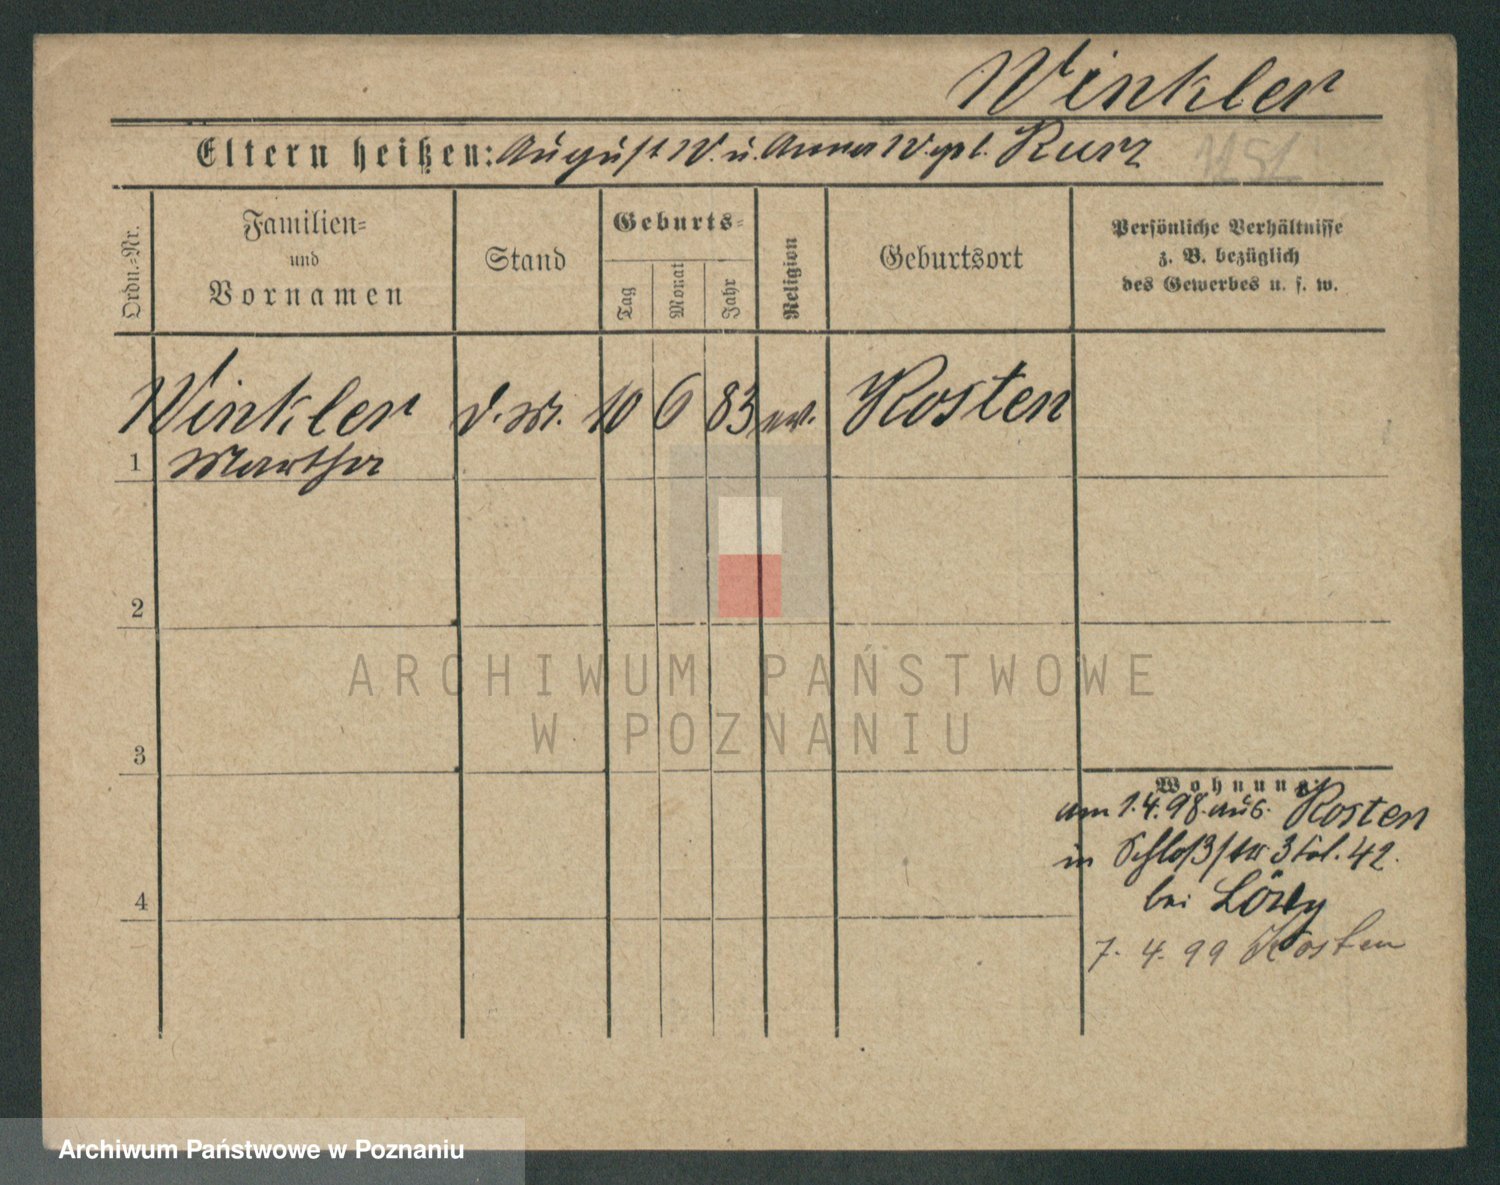 Winkler
Eltern heißen: August W. u. Anna W. geb. Kurz
Ordn.-Nr.
Familien-
und
Vornamen
Stand
Geburts-
Tag
Monat
Jahr
Religion
Geburtsort
Persönliche Verhältnisse
z. B. bezüglich
des Gewerbes u. s. w.
Winkler d. M. 10 6 83 ev. Kosten
1 Martha
2
ARCHIWUM PAŃSTWOWE
W POZNANIU
3
Wohnung:
am 1.4.98. aus Kosten
in Schloßstr. 42.
4 bei
7. 4. 99 Kosten
Archiwum Państwowe w Poznaniu